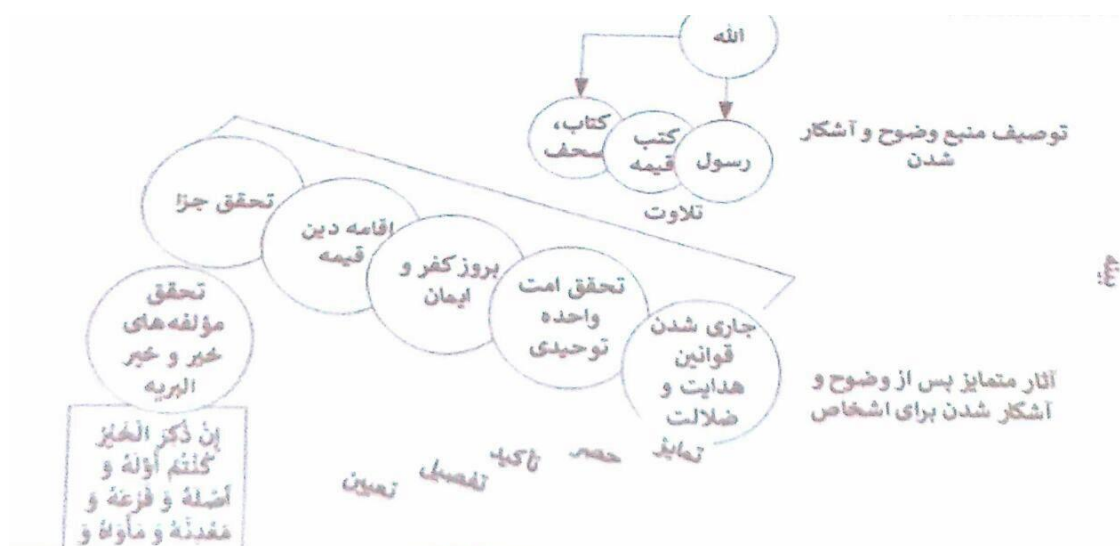 الله
توصیف منبع وضوح و آشکار
شدن
رسول
کتب
قیمه
کتاب،
صحف
تلاوت
بینه
آثار متمایز پس از وضوح و
آشکار شدن برای اشخاص
جاری شدن
قوانین
هدایت و
ضلالت
تحقق امت
واحده
توحیدی
بروز کفر و
ایمان
اقامه دین
قیمه
تحقق جزا
تحقق
مؤلفه‌های
خیر و خیر
البریه
تمایز
حصر
تاکید
تفصیل
تعیین
إِنْ ذُكِرَ الْخَيْرُ
كُنْتُمْ أَوَّلَهُ وَ
أَصْلَهُ وَ فَرْعَهُ وَ
مَعْدِنَهُ وَ مَأْوَاهُ وَ